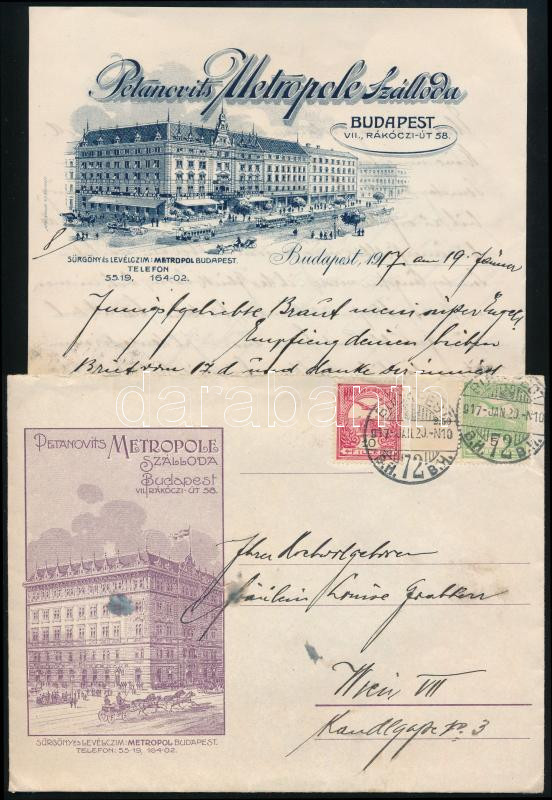 Petanovits Metropole Szálloda
BUDAPEST
VII., RÁKÓCZI-ÚT 58.
SÜRGÖNY és LEVÉLCZIM: METROPOL BUDAPEST.
TELEFON
55-19, 164-02.
Budapest, 1917. am 19 Jänner
8
Innigstgeliebte Braut mein süßer Engel
Empfing deinen lieben
Brief vom 17. d und danke dir innigst
PETANOVITS METROPOLE
SZÁLLODA
Budapest
VII. RÁKÓCZI-ÚT 58.
917-JAN.20.-N10
72
B.H.
917-JAN.20.-N10
72
B.H.
Ihrer Hochwolgeboren
Fräulein Louise
Wien VII
Kandlgasse No. 3
SÜRGÖNY és LEVÉLCZIM: METROPOL BUDAPEST.
TELEFON: 55-19, 164-02.
darabanth